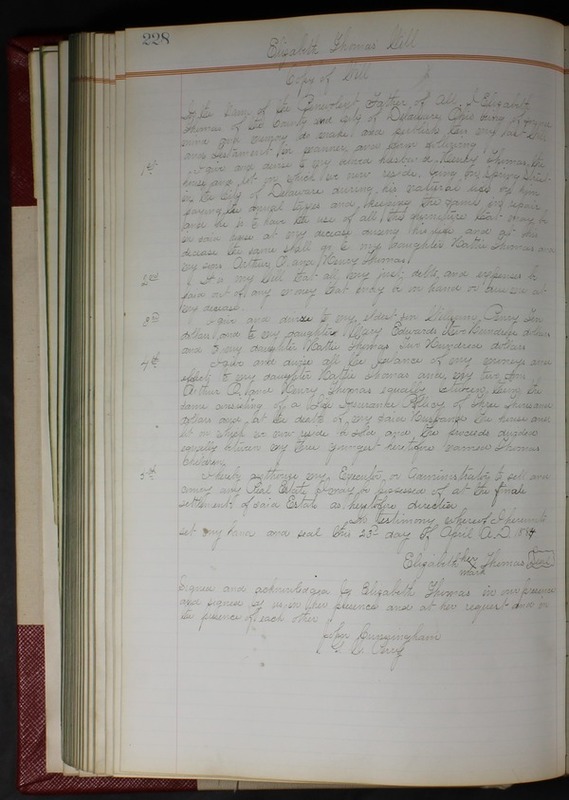 228
Elizabeth Thomas Will
Copy of Will
In the Name of the Benevolent Father of All, I Elizabeth
Thomas of the County and City of Delaware, Ohio being of
mind and memory do make and publish this my last Will
and testament in manner and form following
1st I give and devise to my beloved husband Henry Thomas, the
house and lot on which we now reside, Spring Street
in the City of Delaware during his natural life by him
paying the annual taxes and keeping the same in repair
and he is to have the use of all the furniture that may be
in said house at my decease during his life and at his
decease the same shall go to my daughter Hattie Thomas and
my sons Arthur O. and Henry Thomas
2nd It is my Will that all my just debts and expenses be
paid out of any money that may be on hand or due me at
my decease.
3rd I give and devise to my eldest son William Perry
dollars and to my daughter Mary Edwards Hundred dollars
and to my daughter Hattie Thomas Two Hundred dollars
4th I give and devise all the balance of my moneys and
effects to my daughter Hattie Thomas and my two Sons
Arthur O. and Henry Thomas equally between them the
same consisting of a Life Insurance Policy of Three thousand
dollars and at the death of my said Husband the house and
lot on which we now reside to be sold and the proceeds divided
equally between my three youngest heretofore named Thomas
Children.
5th I hereby authorize my Executor or Administrator to sell and
convey any Real Estate I may be possessed of at the final
settlement of said Estate as heretofore directed
In testimony whereof I hereunto
set my hand and seal this 23d day of April A.D. 1874
Elizabeth her mark Thomas Seal
Signed and acknowledged by Elizabeth Thomas in our presence
and signed by us in her presence and at her request and in
the presence of each other
John Cunningham